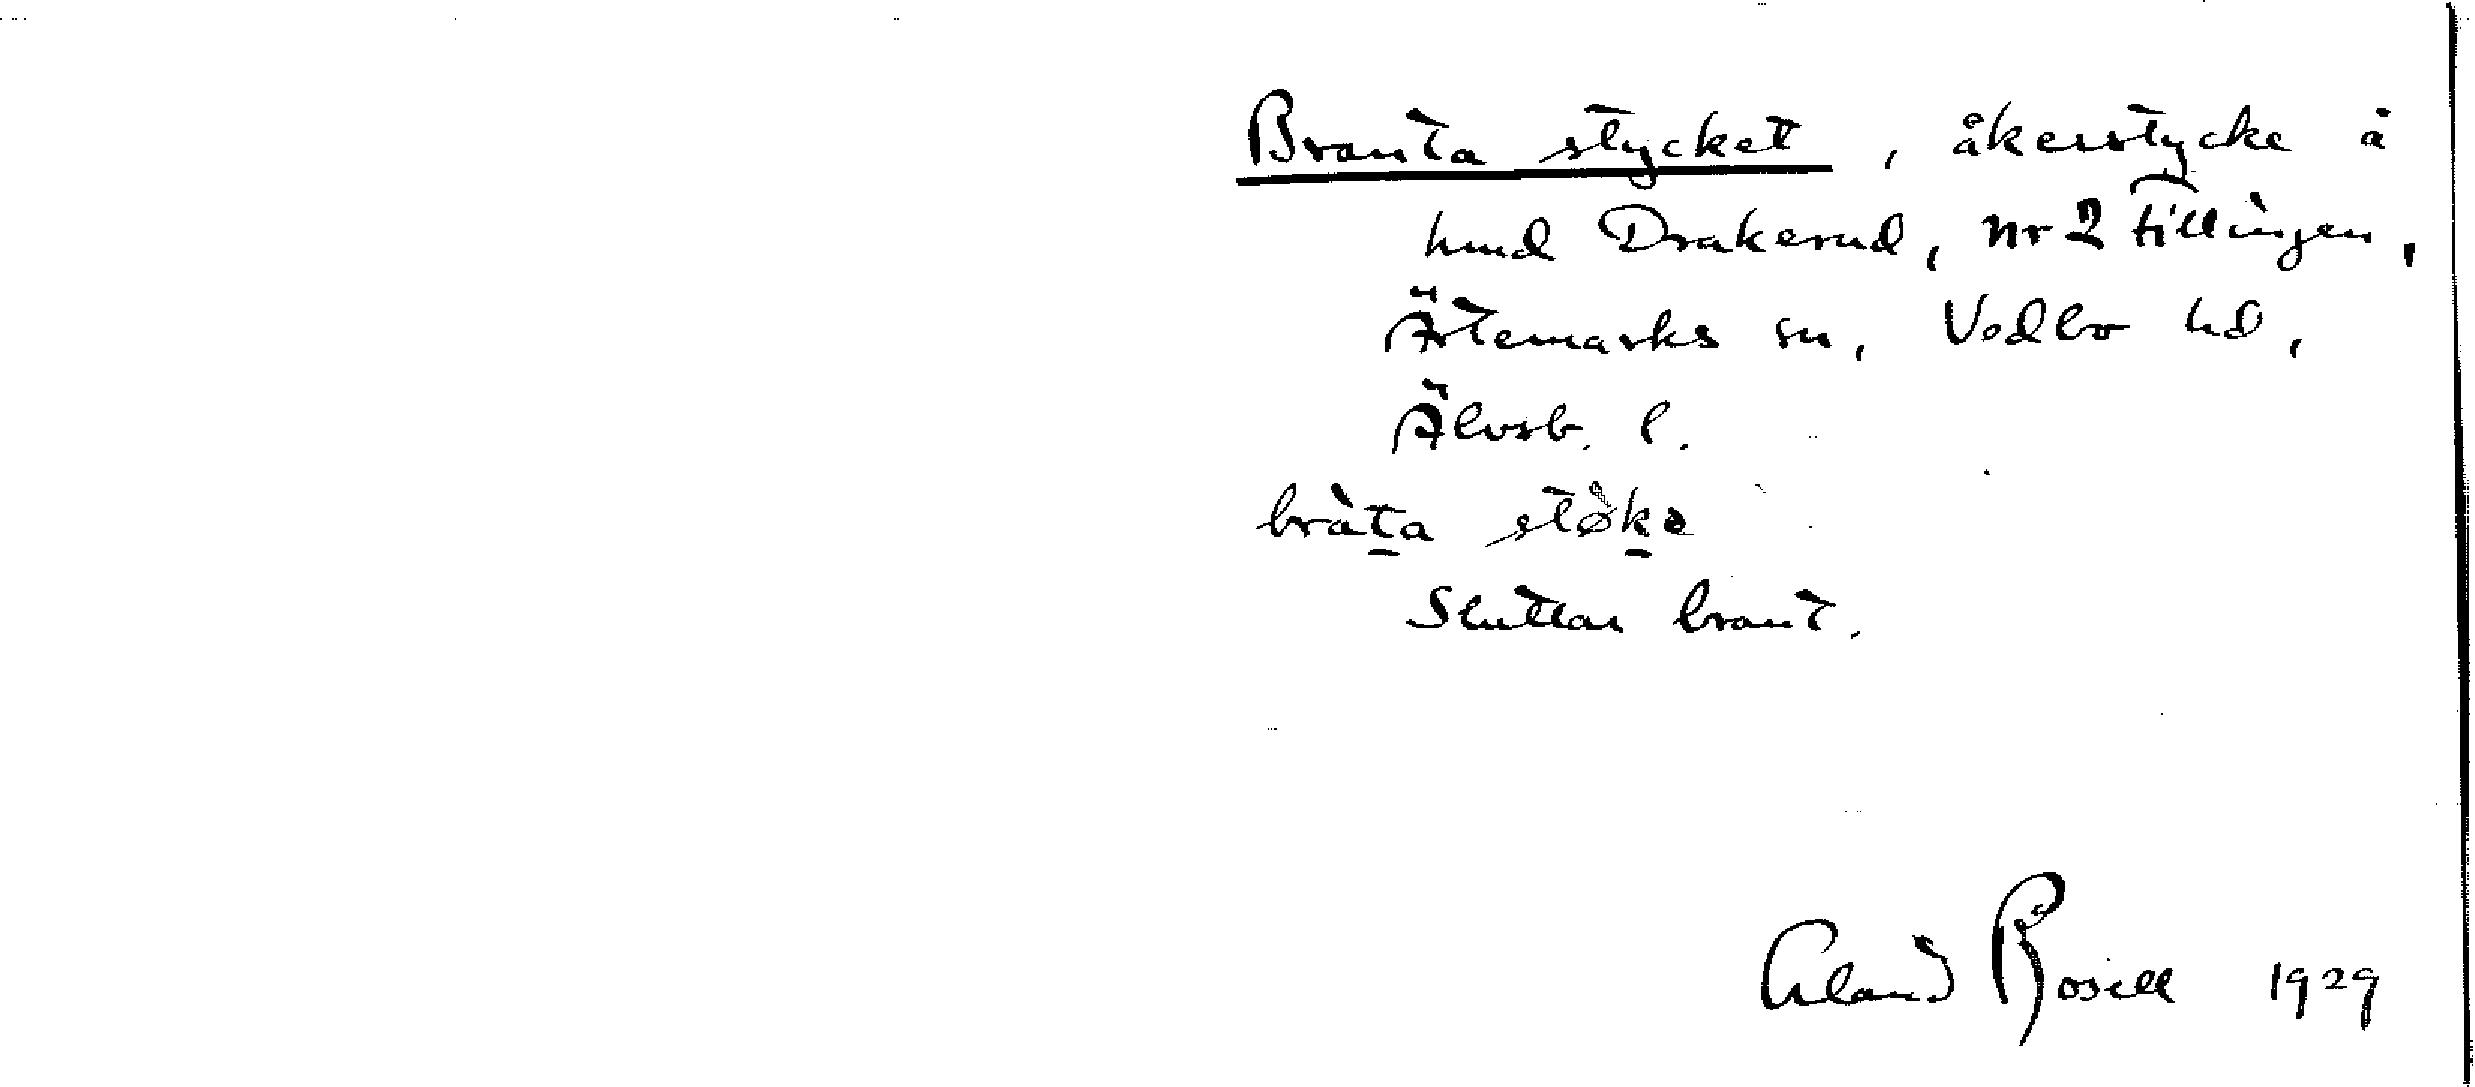 Branta stycket, åkerstycke å
hmd Drakerud, nr 2 Fillingen,
Ärtemarks sn, Vedbo hd,
Älvsb. l.
bràta støkə
Sluttar brant.
Erland Rosell 1929